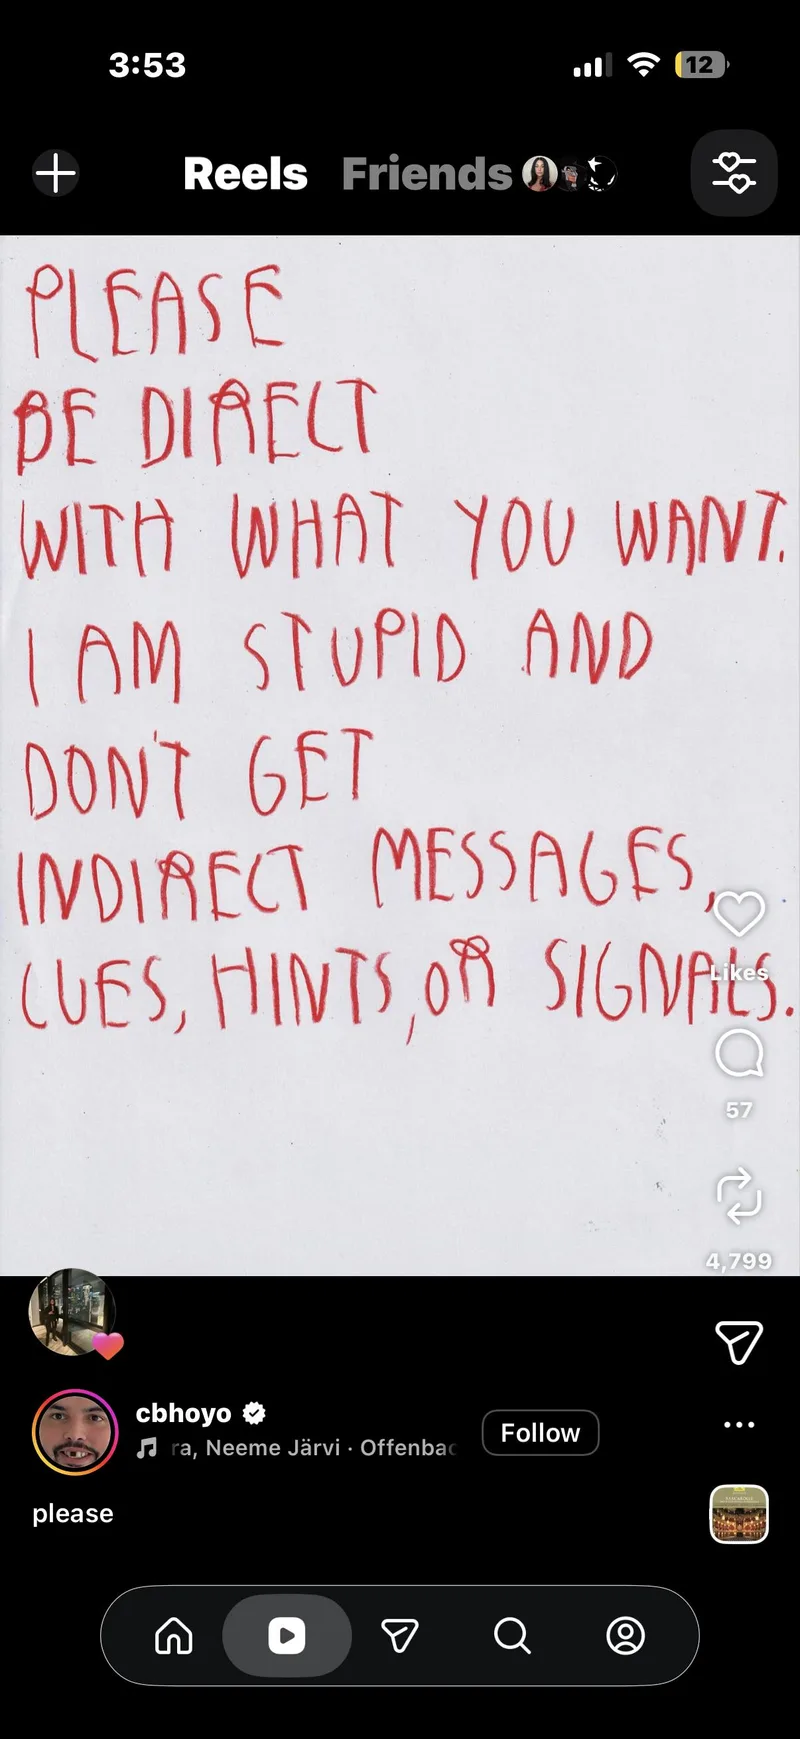 3:53
12
Reels Friends
PLEASE
BE DIRECT
WITH WHAT YOU WANT.
I AM STUPID AND
DON'T GET
INDIRECT MESSAGES,
CUES, HINTS, OR SIGNALS.
Likes
57
4,799
cbhoyo
ra, Neeme Järvi · Offenbac
Follow
please